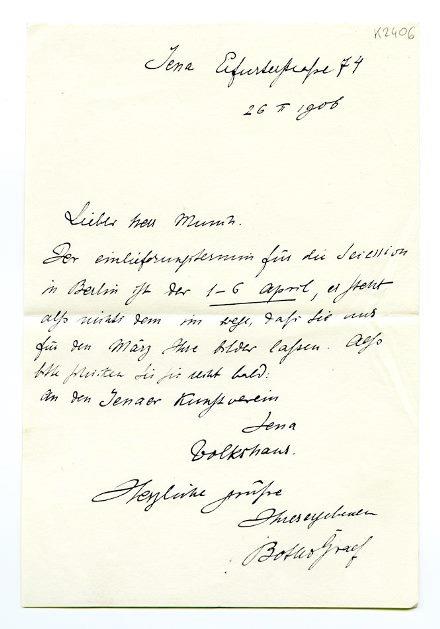 K2406
Jena Erfurterstraße 74
26 II 1906
Lieber Herr Munch.
Der einlieferungstermin für die Secession
in Berlin ist der 1-6 April, es steht
also nichts dem im wege, daß Sie uns
für den März Ihre bilder lassen. Also
bitte schicken Sie sie recht bald:
an den Jenaer Kunstverein
Jena
Volkshaus.
Herzliche grüße
Ihr ergebener
Botho Graef